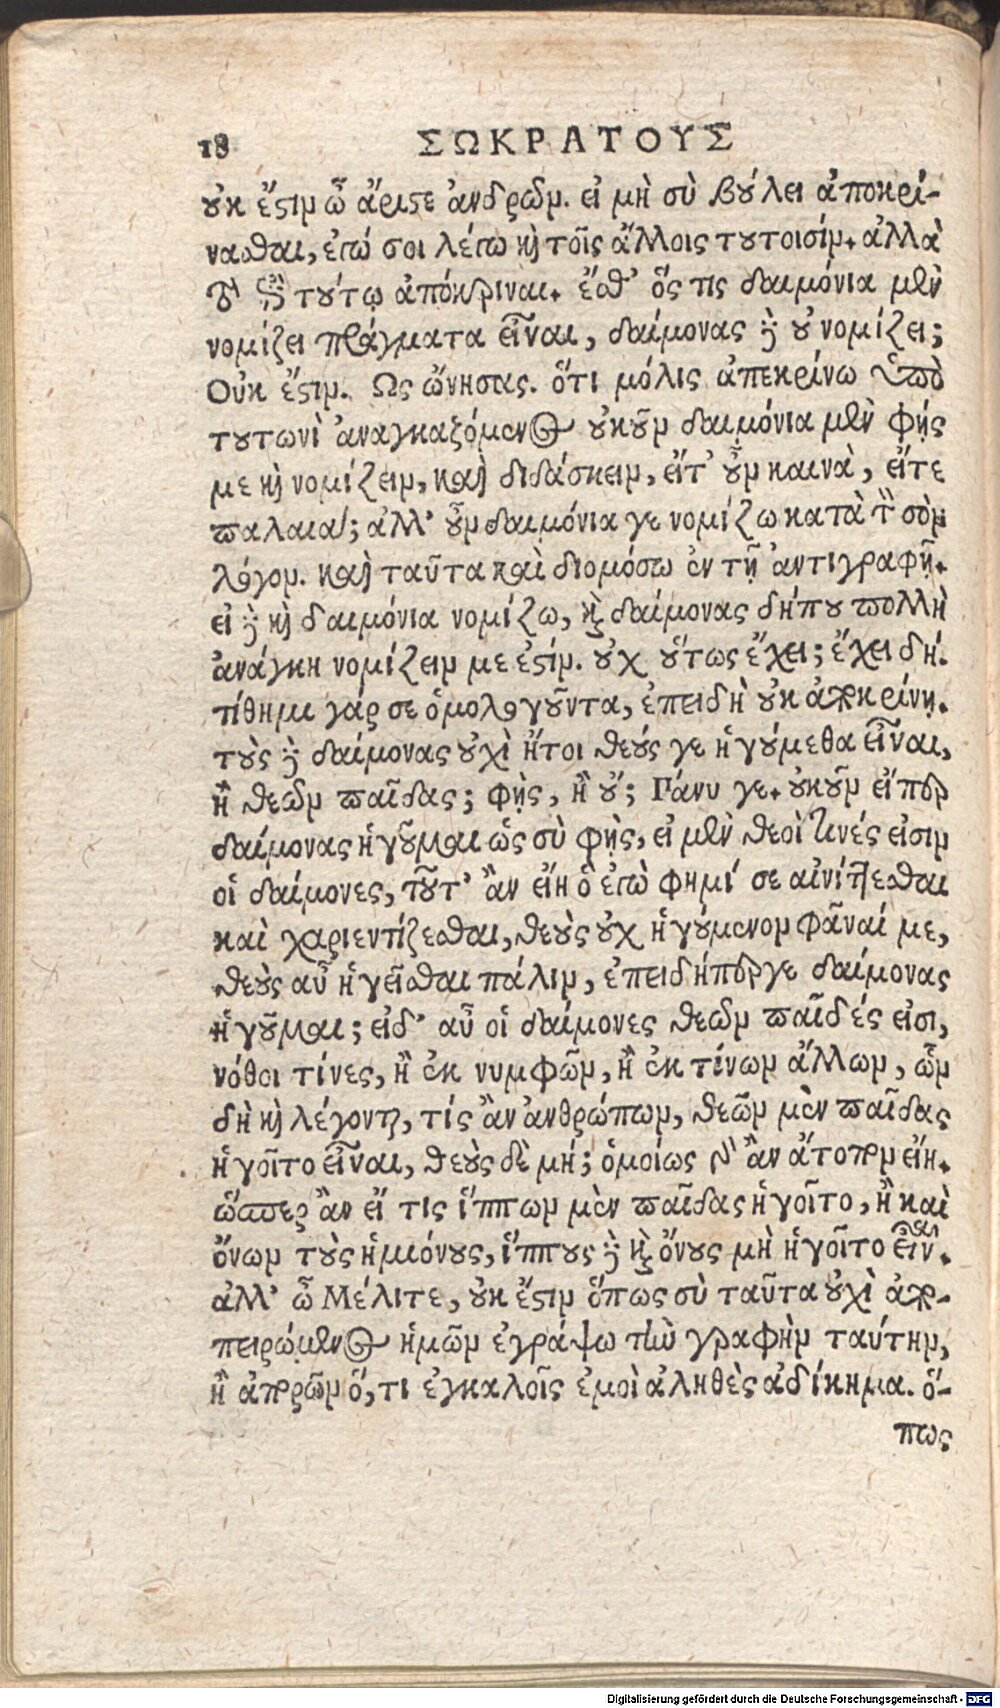 18 ΣΩΚΡΑΤΟΥΣ
οὐκ ἔστιν ὦ ἄριστε ἀνδρῶν. εἰ μὴ σὺ βούλει ἀποκρί-
νασθαι, ἐγώ σοι λέγω καὶ τοῖς ἄλλοις τουτοισίν. ἀλλὰ
τὸ ἐπὶ τούτῳ ἀπόκριναι. ἔσθ' ὅς τις δαιμόνια μὲν
νομίζει πράγματα εἶναι, δαίμονας δὲ οὐ νομίζει;
Οὐκ ἔστιν. Ως ὤνησας. ὅτι μόλις ἀπεκρίνω ὑπὸ
τουτωνὶ ἀναγκαζόμενος οὐκοῦν δαιμόνια μὲν φῄς
με καὶ νομίζειν, καὶ διδάσκειν, εἴτ' οὖν καινὰ, εἴτε
παλαιά; ἀλλ' οὖν δαιμόνια γε νομίζω κατὰ τὸν σὸν
λόγον. καὶ ταῦτα καὶ διομόσω ἐν τῇ ἀντιγραφῇ.
εἰ δὲ καὶ δαιμόνια νομίζω, καὶ δαίμονας δήπου πολλὴ
ἀνάγκη νομίζειν με ἐστίν. οὐχ οὕτως ἔχει; ἔχει δή.
τίθημι γάρ σε ὁμολογοῦντα, ἐπειδὴ οὐκ ἀποκρίνῃ.
τοὺς δὲ δαίμονας οὐχὶ ἤτοι θεούς γε ἡγούμεθα εἶναι,
ἢ θεῶν παῖδας; φῂς, ἢ οὔ; Πάνυ γε. οὐκοῦν εἴπερ
δαίμονας ἡγοῦμαι ὡς σὺ φῂς, εἰ μὲν θεοὶ τινές εἰσιν
οἱ δαίμονες, τοῦτ' ἂν εἴη ὃ ἐγὼ φημί σε αἰνίττεσθαι
καὶ χαριεντίζεσθαι, θεοὺς οὐχ ἡγούμενον φᾶναί με,
θεοὺς αὖ ἡγεῖσθαι πάλιν, ἐπειδήπερ γε δαίμονας
ἡγοῦμαι; εἰδ' αὖ οἱ δαίμονες θεῶν παῖδές εἰσι,
νόθοι τίνες, ἢ ἐκ νυμφῶν, ἢ ἐκ τίνων ἄλλων, ὧν
δὴ καὶ λέγονται, τίς ἂν ἀνθρώπων, θεῶν μὲν παῖδας
ἡγοῖτο εἶναι, θεοὺς δὲ μή; ὁμοίως γὰρ ἂν ἄτοπον εἴη.
ὥσπερ ἂν εἴ τις ἵππων μὲν παῖδας ἡγοῖτο, ἢ καὶ
ὄνων τοὺς ἡμιόνους, ἵππους δὲ καὶ ὄνους μὴ ἡγοῖτο εἶναι.
ἀλλ' ὦ Μέλιτε, οὐκ ἔστιν ὅπως σὺ ταῦτα οὐχὶ ἀπο-
πειρώμενος ἡμῶν ἐγράψω τὴν γραφὴν ταύτην,
ἢ ἀπορῶν ὅ,τι ἐγκαλοῖς ἐμοὶ ἀληθὲς ἀδίκημα. ὅ-
πως
Digitalisierung gefördert durch die Deutsche Forschungsgemeinschaft - DFG